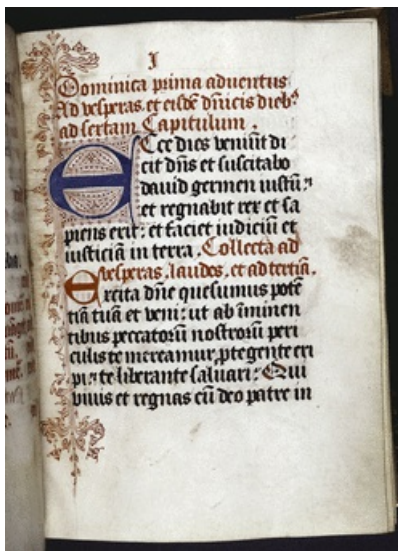 I
Dominica prima aduentus
Ad vesperas et eisdē dn̄icis dieb⁹
ad sextam Capitulum.
Ecce dies veniūt di
cit dn̄s et suscitabo
dauid germen iustū: ⁊
et regnabit rex et sa
piens erit: et faciet iudiciū et
iusticiā in terra. Collecta ad
vesperas, laudes, et ad tertiā.
Excita dn̄e quesumus potē
tiā tuā et veni: ut ab īminen
tibus peccatorū nostrorū peri
culis te mereamur, ꝓtegente eri
pi: ⁊ te liberante saluari: Qui
viuis et regnas cū deo patre in